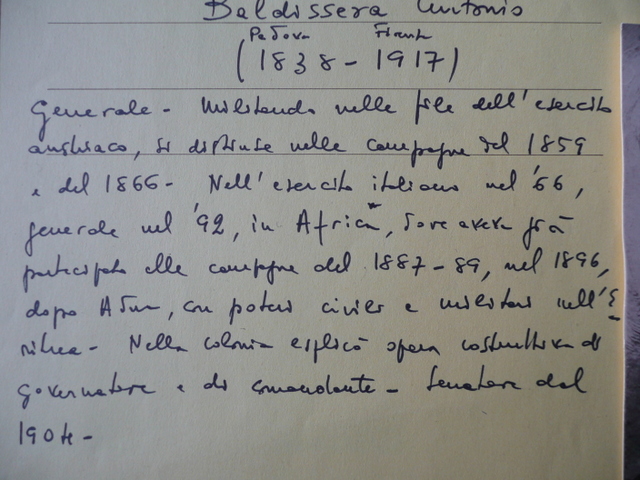 Baldissera Antonio
Padova Firenze
(1838 - 1917)
Generale - Militando nelle file dell'esercito
austriaco, si distinse nelle campagne del 1859
e del 1866 - Nell'esercito italiano nel '66,
generale nel '92, in Africa*, dove aveva già
partecipato alle campagne del 1887-89, nel 1896,
dopo Adua, con poteri civili e militari nell'E
ritrea - Nella colonia esplicò opera costruttiva di
governatore e di comandante - Senatore dal
1904 -